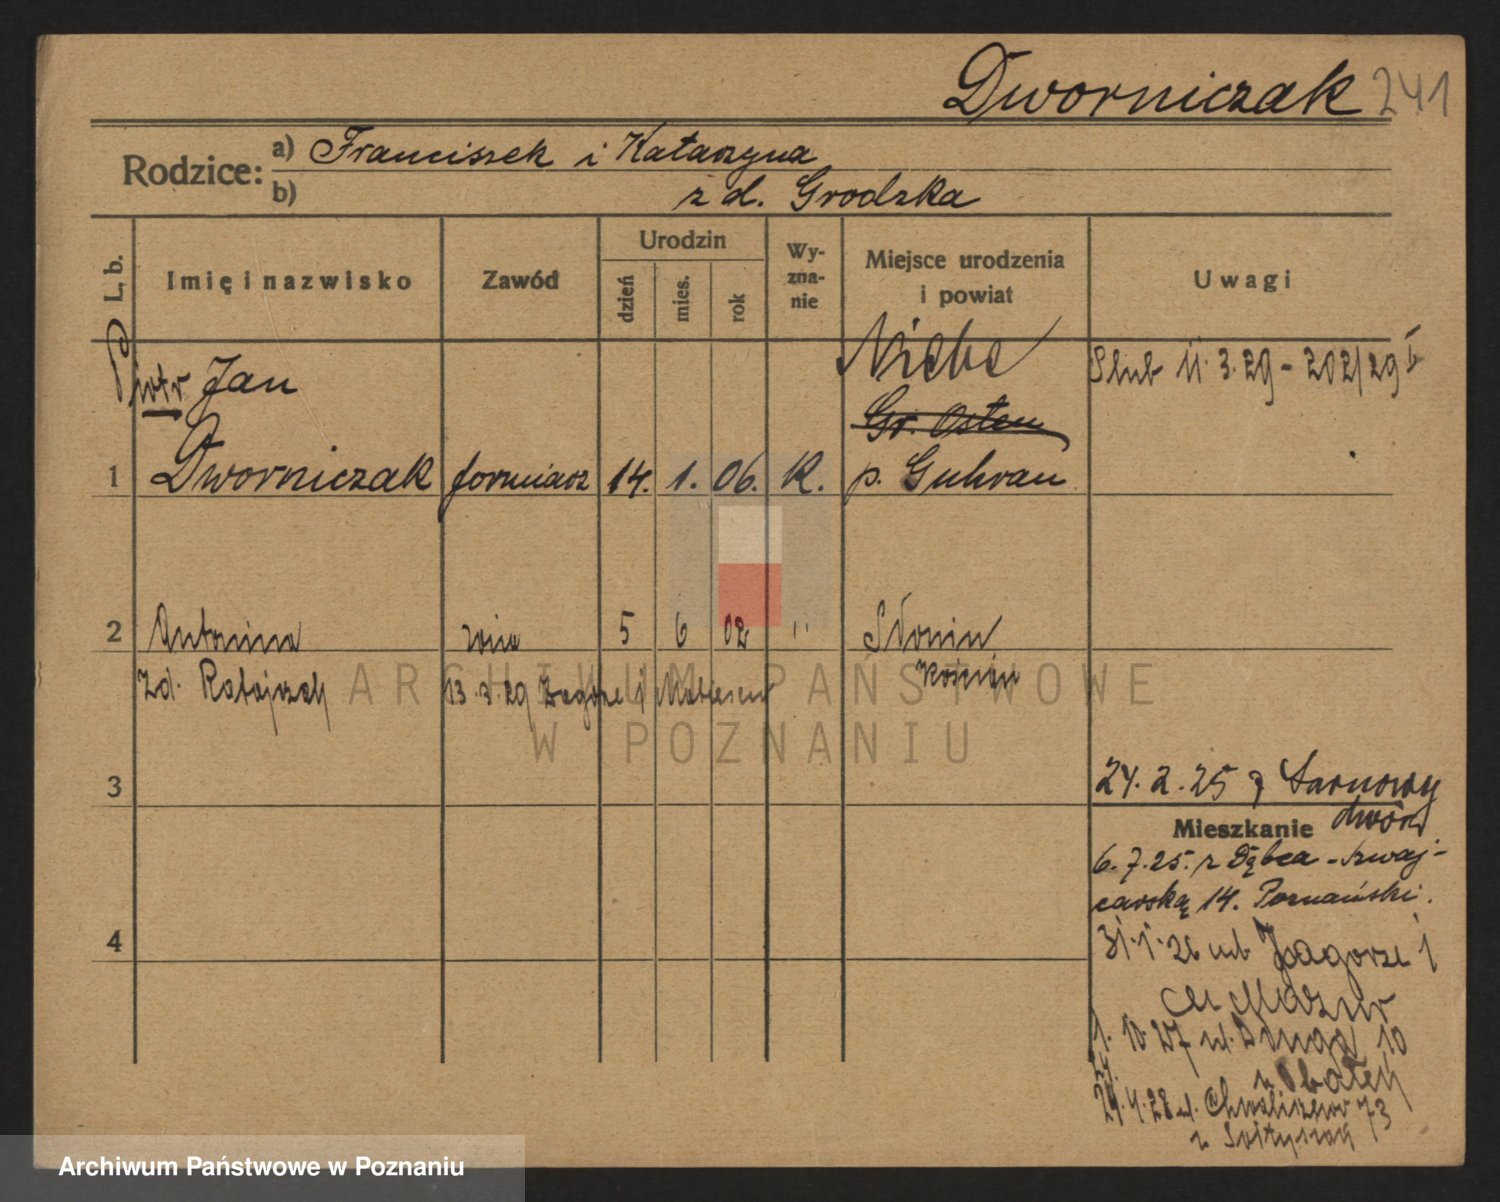 Dworniczak 241
Rodzice: a) Franciszek i Katarzyna
b) z d. Grodzka
L. b. Imię i nazwisko Zawód Urodzin dzień mies. rok Wyznanie Miejsce urodzenia i powiat Uwagi
Piotr Jan Niebe Slub 11.3.29 - 202/29
Gr. Osten
1 Dworniczak formiarz 14. 1. 06. K. p. Guhrau
2 Antonina żona 5 6 02 " Słonin
zd. Ratajczak 13.3.29 Zagórze 1 Kościan
ARCHIWUM PAŃSTWOWE
W POZNANIU
3 24.2.25 Sarnowy
dwór
Mieszkanie
6.7.25. z Dębca - Szwaj-
carską 14. Poznański.
4 31.1.26 Zagorze 1
Mazur
1.10.27 ul. Długa 10
24.4.28 ul. Chwaliszewo 73
Archiwum Państwowe w Poznaniu